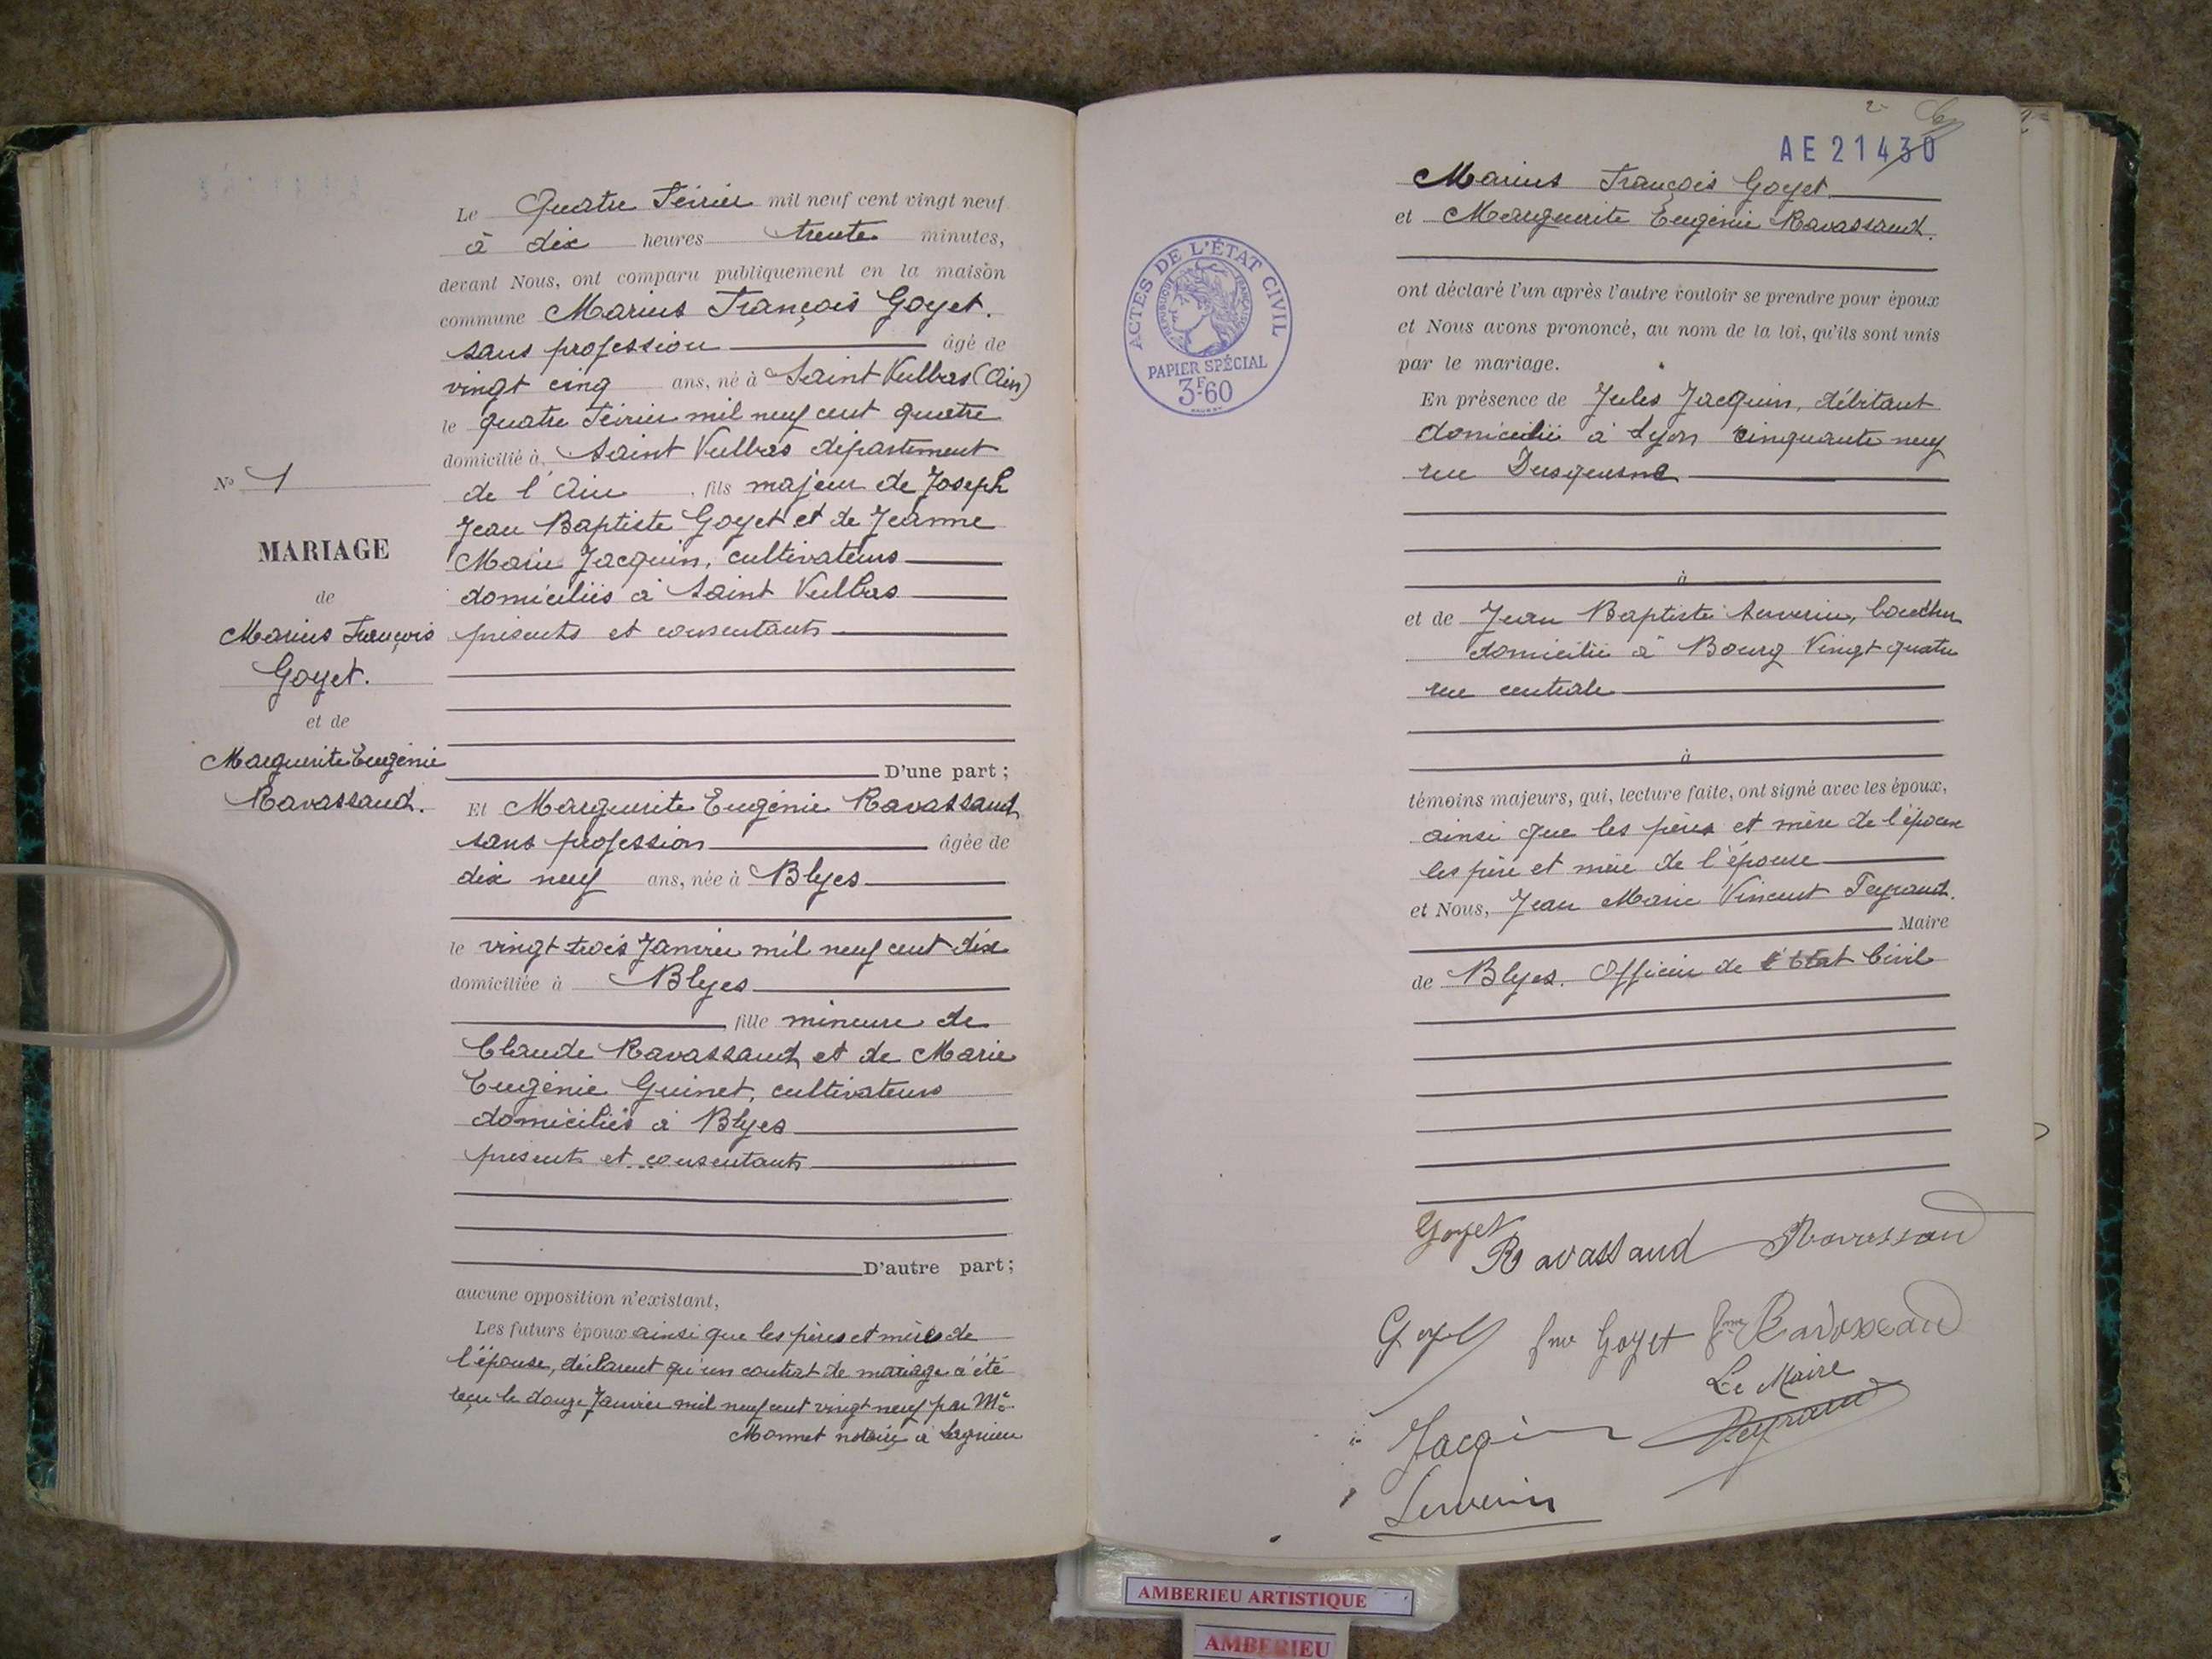 Le Quatre Février mil neuf cent vingt neuf
à dix heures trente minutes,
devant Nous, ont comparu publiquement en la maison
commune Marius François Goyet.
sans profession âgé de
vingt cinq ans, né à Saint Vulbas (Ain)
le quatre Février mil neuf cent quatre
domicilié à Saint Vulbas département
de l'Ain, fils majeur de Joseph
Jean Baptiste Goyet et de Jeanne
Marie Jacquin, cultivateurs
domiciliés à Saint Vulbas
présents et consentants
D'une part ;
Nº 1
MARIAGE
de
Marius François
Goyet.
et de
Marguerite Eugénie
Ravassaud.
Et Marguerite Eugénie Ravassaud
sans profession âgée de
dix neuf ans, née à Blyes
le vingt trois Janvier mil neuf cent dix
domiciliée à Blyes
, fille mineure de
Claude Ravassaud et de Marie
Eugénie Guinet, cultivateurs
domiciliés à Blyes
présents et consentants
D'autre part ;
aucune opposition n'existant,
Les futurs époux ainsi que les pères et mères de
l'épouse, déclarent qu'un contrat de mariage a été
reçu le douze Janvier mil neuf cent vingt neuf par Me
Monnet notaire à Lagnieu
2
AE 21430
Marius François Goyet
et Marguerite Eugénie Ravassaud.
ont déclaré l'un après l'autre vouloir se prendre pour époux
et Nous avons prononcé, au nom de la loi, qu'ils sont unis
par le mariage.
En présence de Jules Jacquin, débitant
domicilié à Lyon cinquante neuf
rue Dusquesne
à
et de Jean Baptiste Serverin, boucher
domicilié à Bourg Vingt quatre
rue centrale
à
témoins majeurs, qui, lecture faite, ont signé avec les époux,
ainsi que les pères et mère de l'époux
les père et mère de l'épouse
et Nous, Jean Marie Vincent Peyraud.
Maire
de Blyes. Officier de l'état Civil
ACTES DE L'ÉTAT CIVIL
RÉPUBLIQUE FRANÇAISE
PAPIER SPÉCIAL
3F60
Goyet
Ravassaud Ravassaud
Goyet fme Goyet fme Ravassaud
Le Maire
Jacquin Peyraud
Serverin
AMBERIEU ARTISTIQUE
AMBERIEU